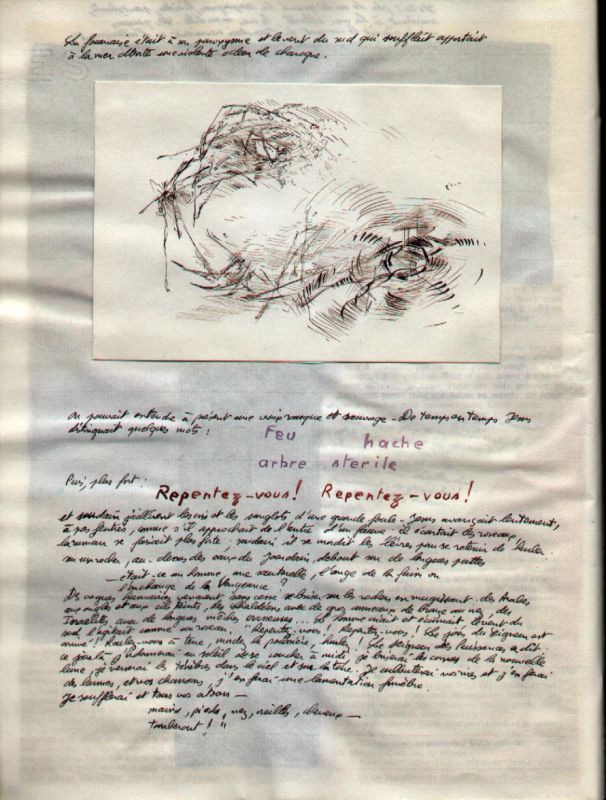 La fournaise était à son paroxysme et le vent du sud qui soufflait apportait
à la mer Morte une violente odeur de charogne.
on pouvait entendre à présent une voix rauque et sauvage - De temps en temps Jésus
distinguait quelques mots :
Feu hache
arbre sterile
Puis, plus fort :
Repentez-vous! Repentez-vous!
et soudain jaillirent les cris et les sanglots d'une grande foule - Jésus avançait lentement,
à pas feutrés, comme s'il approchait de l'antre d'un fauve - il écartait les roseaux
la rumeur se faisait plus forte, soudain il se mordit les lèvres pour se retenir de hurler.
sur un rocher, au-dessus des eaux du Jourdain, debout sur de longues pattes
- était-ce un homme, une sauterelle, l'ange de la faim ou
l'archange de la Vengeance ?
Des vagues humaines venaient sans cesse se briser sur les rochers en mugissant - des Arabes
aux ongles et aux cils teints, des Chaldéens avec de gros anneaux de bronze au nez, des
Israélites avec de longues mèches crasseuses... et écumait, le vent du
sud l'agitait comme un roseau. "Repentez-vous ! Repentez-vous ! Le jour du Seigneur est
arrivé ! Roulez-vous à terre, mordez la poussière, hurlez ! Le Seigneur des Puissances a dit :
ce jour-là j'ordonnerai au soleil de se coucher à midi, je briserai les cornes de la nouvelle
lune, je verserai les ténèbres dans le ciel et sur la terre. Je vos rires et j'en ferai
des larmes, et vos chansons, j'en ferai une lamentation funèbre.
Je soufflerai et tous vos atours -
mains, pieds, nez, oreilles, cheveux -
tomberont ! "